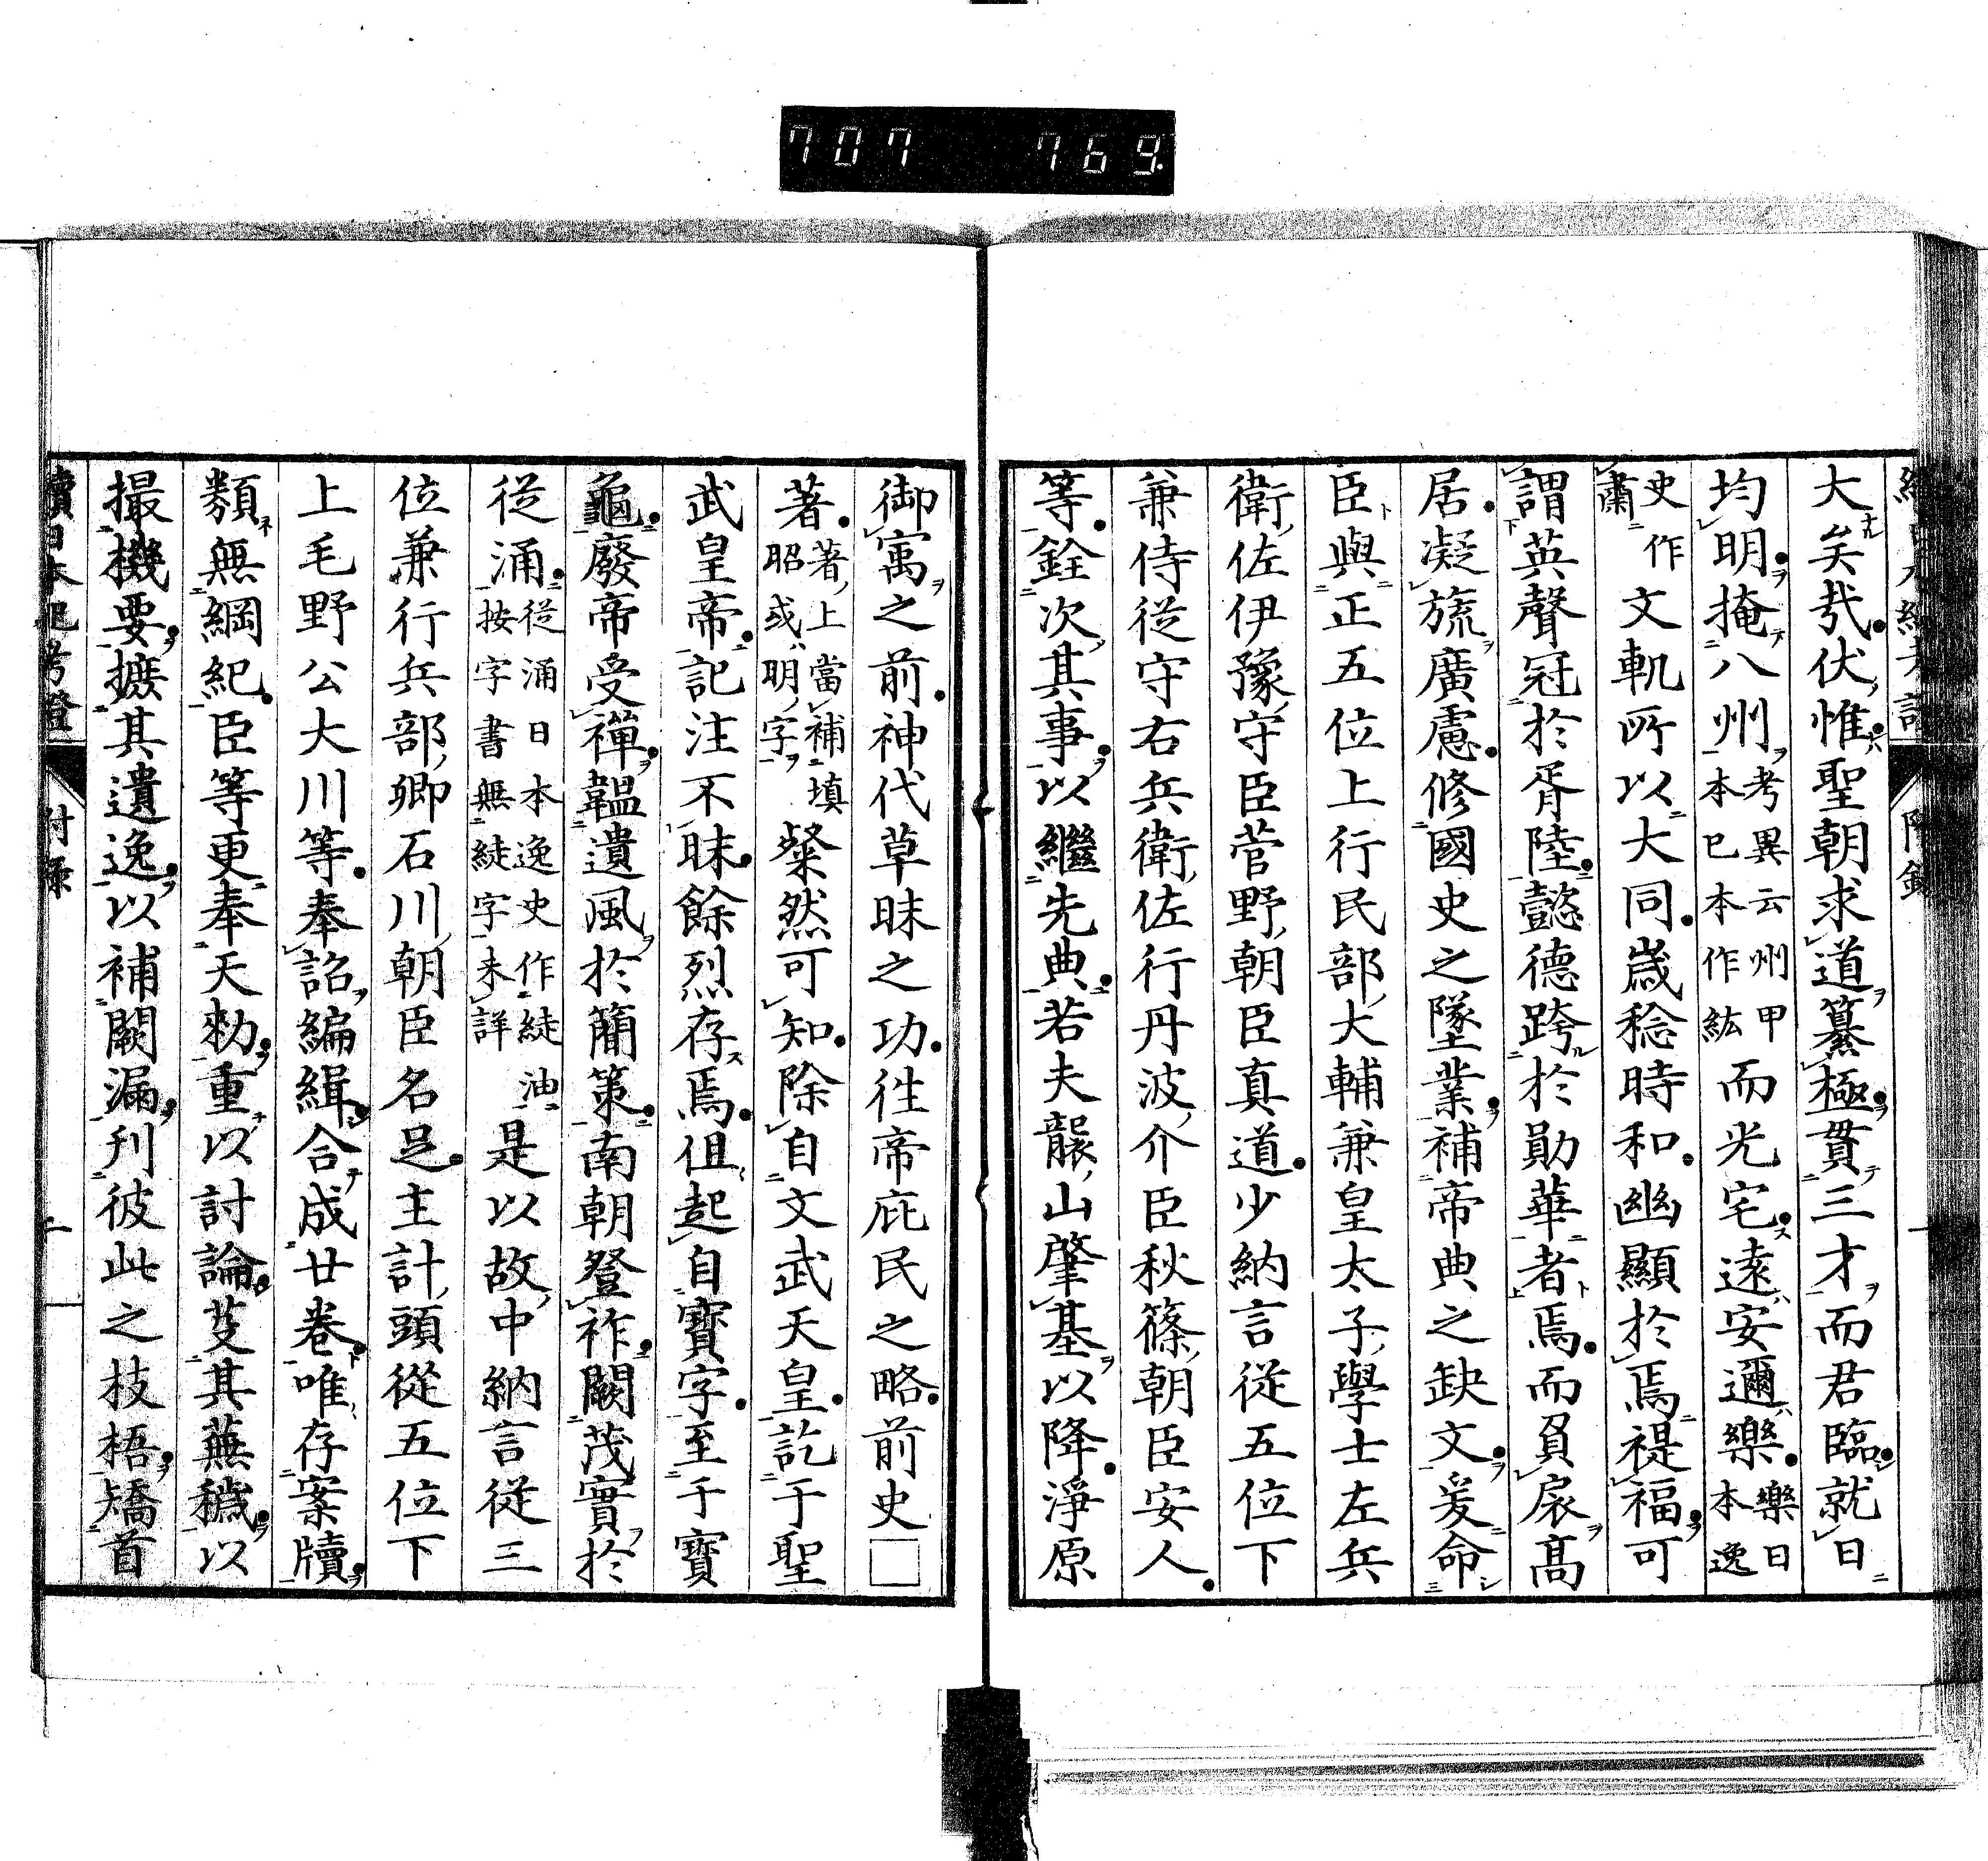 707 769
大矣哉伏惟聖朝求道纂極貫三才而君臨就日
均明掩八州考異云州甲本巳本作紘而光宅遠安邇樂樂日本逸
史作肅文軌所以大同歲稔時和幽顯於焉禔福可
謂英聲冠於胥陸懿德跨於勛華者焉而負扆高
居凝旒廣慮修國史之墜業補帝典之缺文爰命
臣與正五位上行民部大輔兼皇太子學士左兵
衛佐伊豫守臣菅野朝臣真道少納言從五位下
兼侍從守右兵衛佐行丹波介臣秋篠朝臣安人
等銓次其事以繼先典若夫襲山肇基以降淨原
御寓之前神代草昧之功往帝庇民之略前史□
著著上當補填昭或明字粲然可知除自文武天皇訖于聖
武皇帝記注不昧餘烈存焉但起自寶字至于寶
龜廢帝受禪韞遺風於簡策南朝登祚闕茂實於
從涌從涌日本逸史作綎油按字書無綎字未詳是以故中納言從三
位兼行兵部卿石川朝臣名足主計頭從五位下
上毛野公大川等奉詔編緝合成廿卷唯存案牘
類無綱紀臣等更奉天勅重以討論芟其蕪穢以
撮機要摭其遺逸以補闕漏刊彼此之枝梧矯首
續日本紀考證 附錄